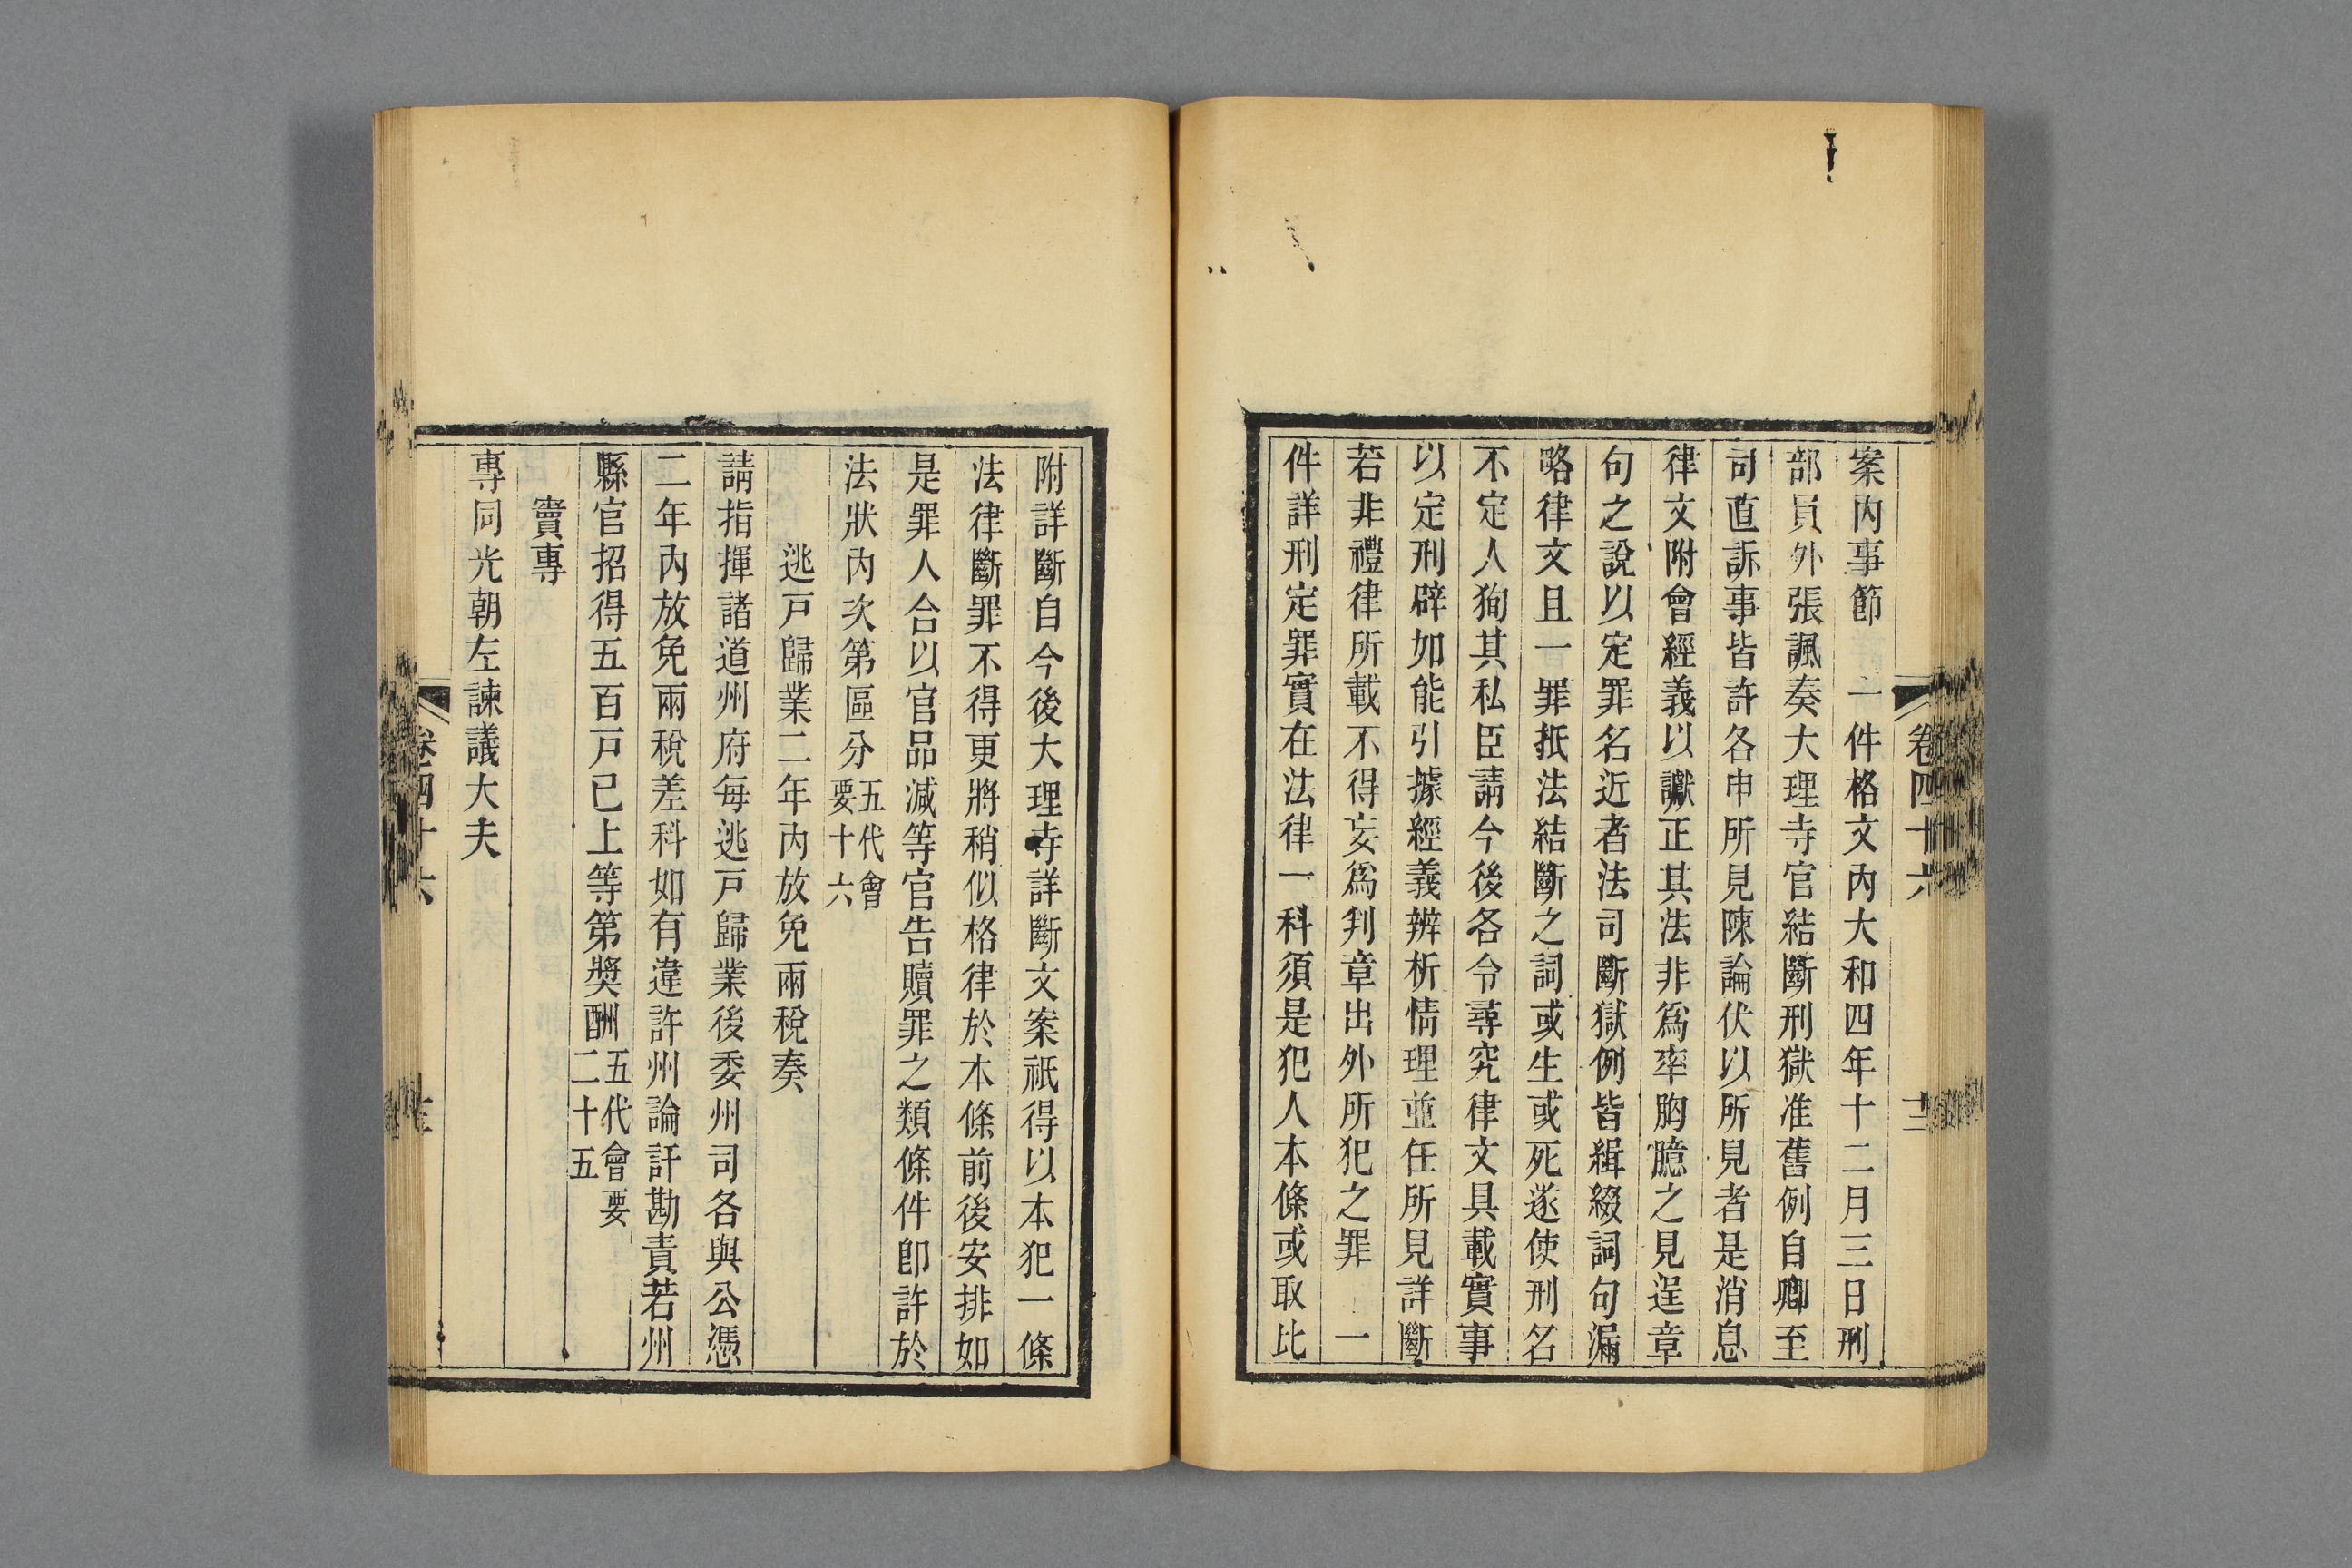 卷四十六
十二
案內事節　一件格文內大和四年十二月三日刑
部員外張諷奏大理寺官結斷刑獄准舊例自卿至
司直訴事皆許各申所見陳論伏以所見者是消息
律文附會經義以讞正其法非爲率胸臆之見逞章
句之說以定罪名近者法司斷獄例皆緝綴詞句漏
略律文且一罪抵法結斷之詞或生或死遂使刑名
不定人狥其私臣請今後各令尋究律文具載實事
以定刑辟如能引據經義辨析情理並任所見詳斷
若非禮律所載不得妄爲判章出外所犯之罪　一
件詳刑定罪實在法律一科須是犯人本條或取比
附詳斷自今後大理寺詳斷文案祇得以本犯一條
法律斷罪不得更將稍似格律於本條前後安排如
是罪人合以官品減等官告贖罪之類條件卽許於
法狀內次第區分五代會
要十六
逃戸歸業二年內放免兩稅奏
請指揮諸道州府每逃戸歸業後委州司各與公憑
二年內放免兩稅差科如有違許州論訐勘責若州
縣官招得五百戸已上等第奬酬五代會要
二十五
竇專
專同光朝左諫議大夫
卷四十六